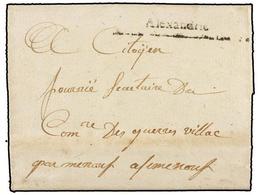 Alexandrie
Au Citoÿen
fourrié Secretaire Du
Com.re Des guerres villac
par menouf a Simenouf